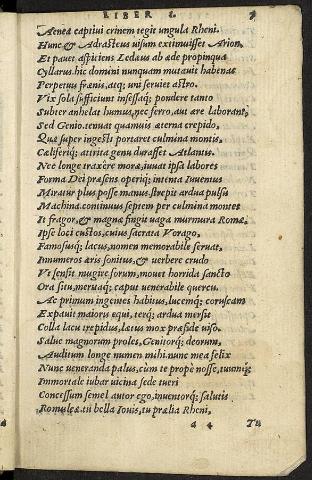 LIBER I.
Aenea captiui crinem tegit ungula Rheni.
Hunc & Adrasteus uisum extimuisset Arion,
Et pauet aspiciens Ledæus ab æde propinqua
Cyllarus. hic domini nunquam mutauit habenas
Perpetuus frænis, atq; uni seruiet astro.
Vix sola sufficiunt insessaq; pondere tanto
Subter anhelat humus, nec ferro, aut ære laborant,
Sed Genio. tenuat quamuis æterna crepido,
Quæ super ingesti portaret culmina montis,
Cæliferiq; attrita genu durasset Atlantis.
Nec longe traxere moræ, iuuat ipsa labores
Forma Dei præsens operiq; intenta Iuuentus
Miratur plus posse manus. strepit ardua pulsu
Machina. continuus septem per culmina montes
It fragor, & magnæ fingit uaga murmura Romæ.
Ipse loci custos, cuius sacrata Vorago,
Famosusq; lacus, nomen memorabile seruat,
Innumeros æris sonitus, & uerbere crudo
Vt sensit mugire forum, mouet horrida sancto
Ora situ, meritaq; caput uenerabile quercu.
Ac primum ingentes habitus, lucemq; coruscam
Expauit maioris equi, terq; ardua mersit
Colla lacu trepidus, lætus mox præside uiso.
Salue magnorum proles, Genitorq; deorum,
Auditum longe numen mihi. nunc mea felix
Nunc ueneranda palus, cum te prope nosse, tuumq;
Immortale iubar uicina sede tueri
Concessum. semel autor ego, inuentorq; salutis
Romuleæ. tu bella Iouis, tu prælia Rheni,
a 4 Tu